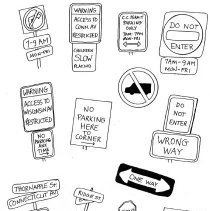 7-9 AM
MON-FRI
WARNING
ACCESS TO
CONN. AV
RESTRICTED
CHILDREN
SLOW
PLAYING
PARKING
ONLY
7AM-7PM
MON-FRI
DO NOT
ENTER
7AM-9AM
MON-FRI
WARNING
ACCESS TO
WISCONSIN AV
RESTRICTED
NO
PARKING
ANY
TIME
NO
PARKING
HERE
TO
CORNER
DO
NOT
ENTER
WRONG
WAY
THORNAPPLE ST.
CONNECTICUT AVE
ONE WAY